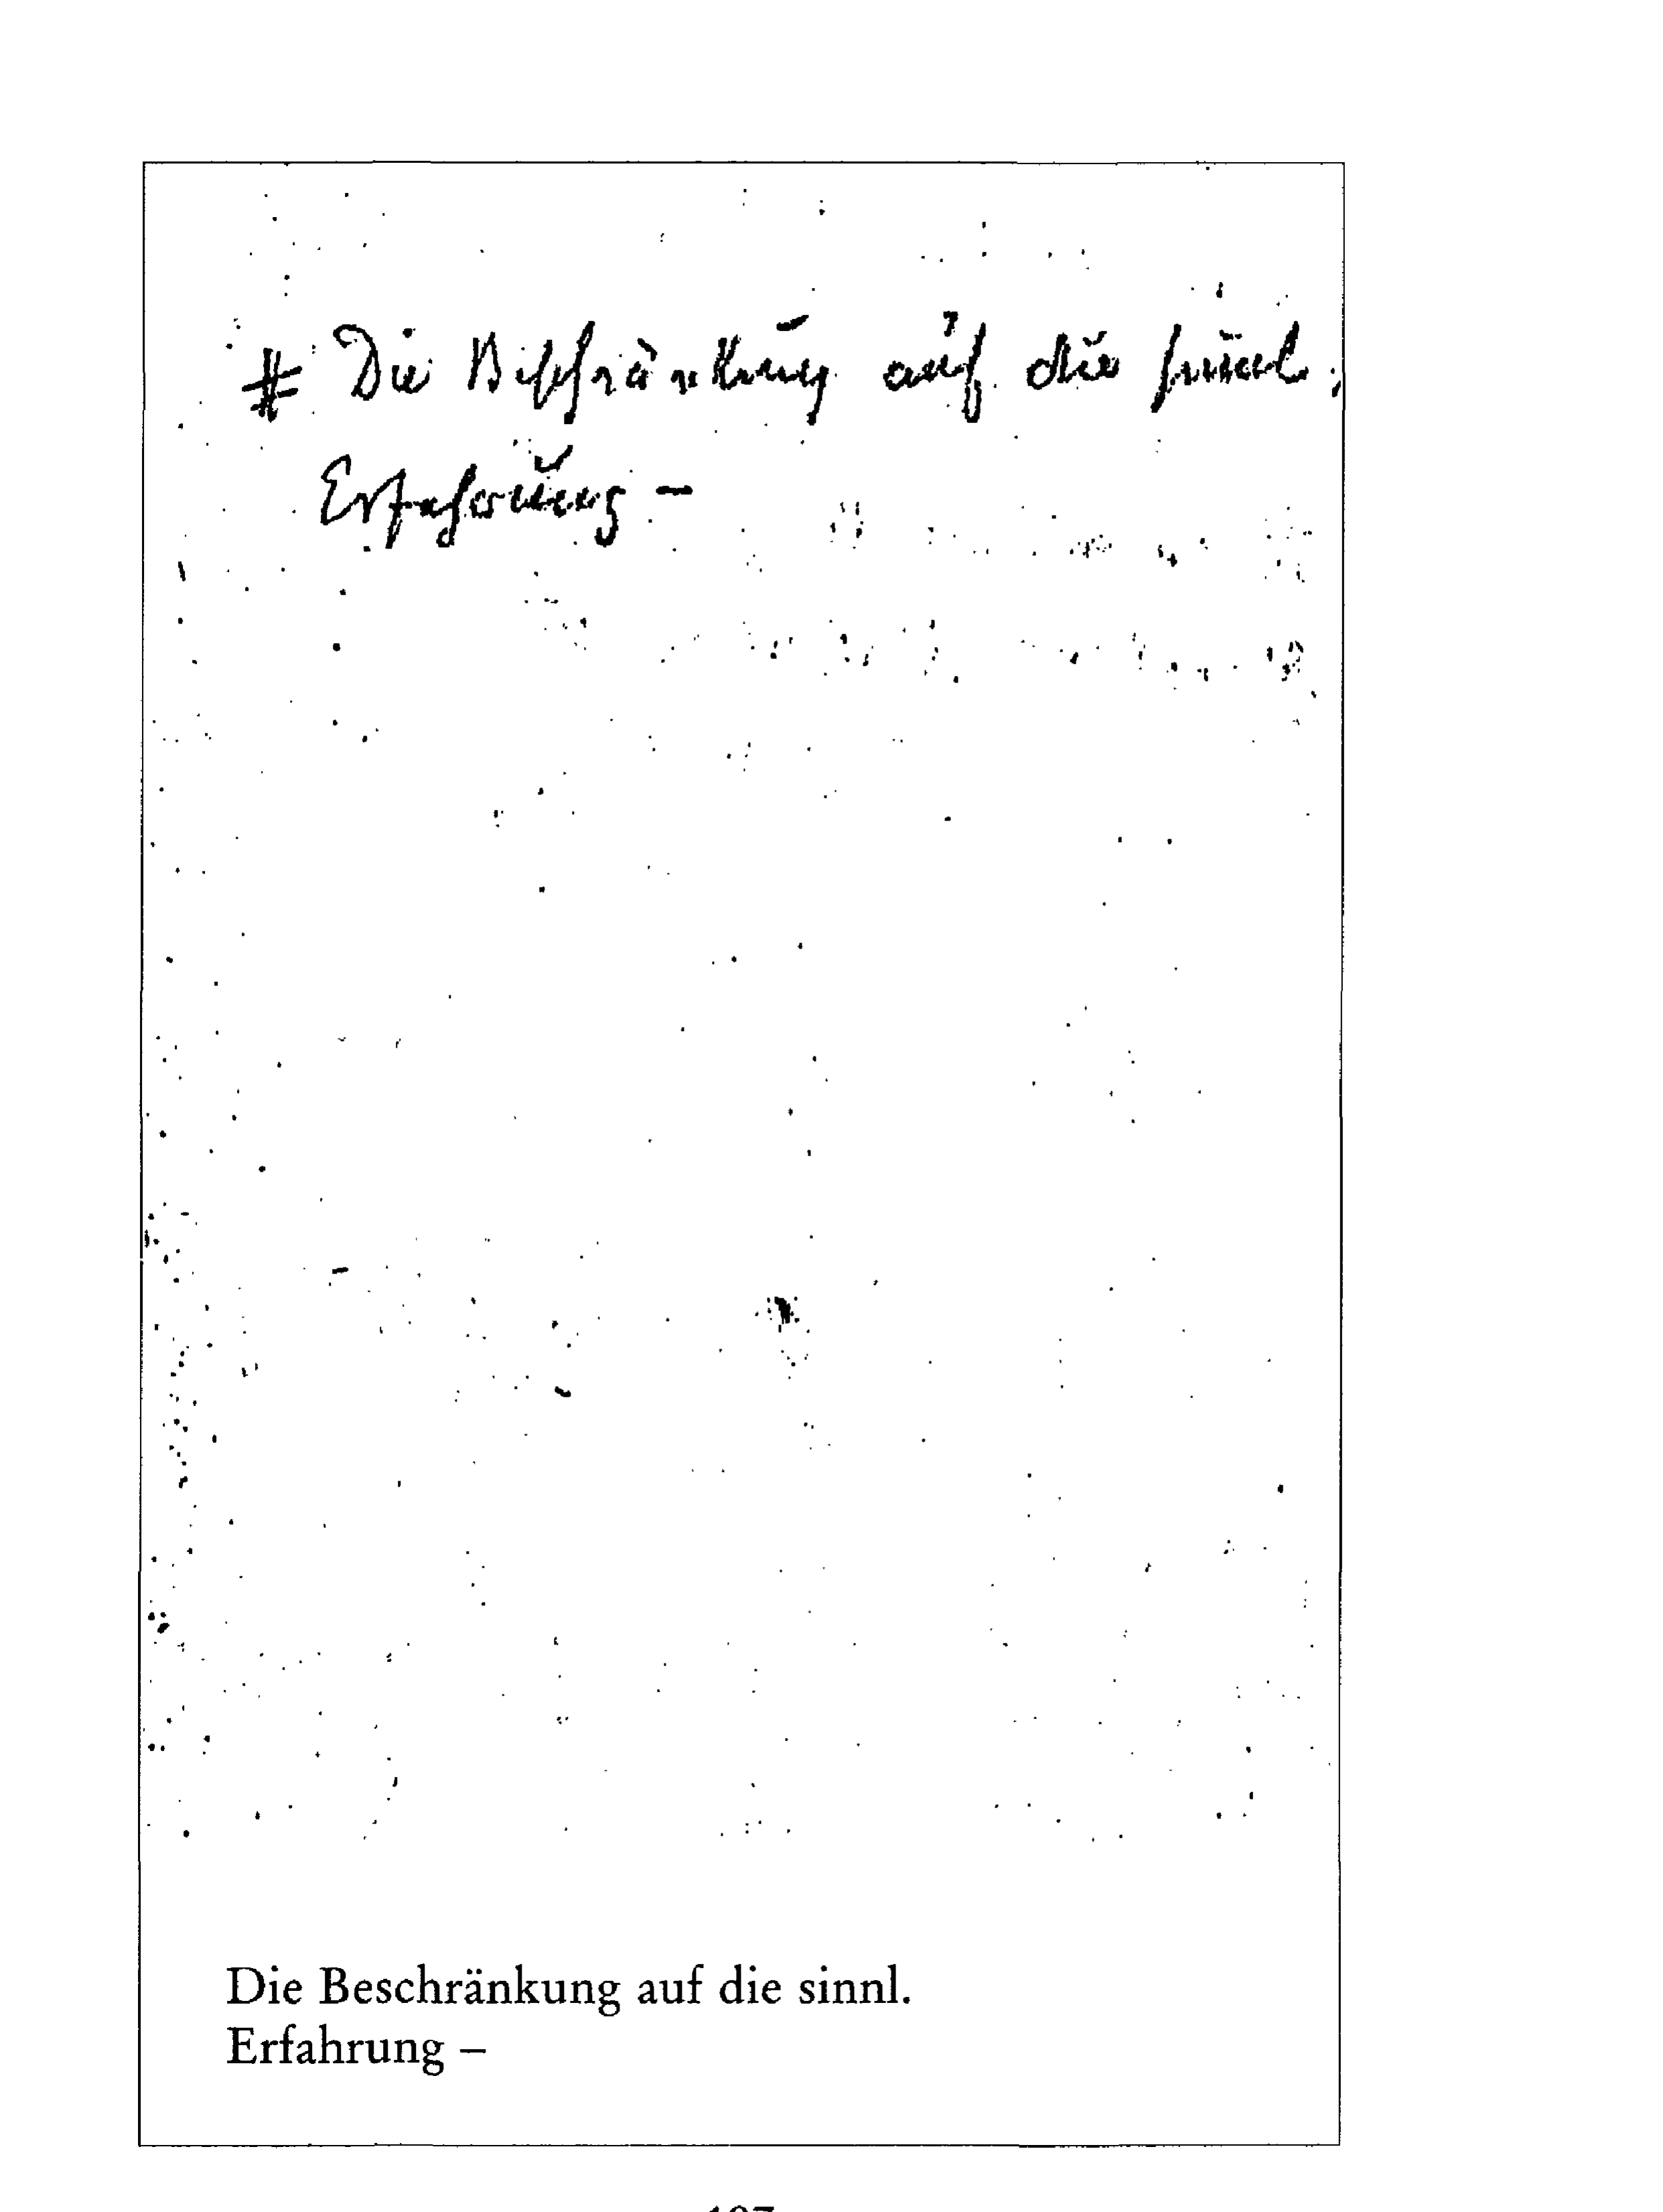 # Die Beschränkung auf die sinnl.
Erfahrung –
Die Beschränkung auf die sinnl.
Erfahrung –